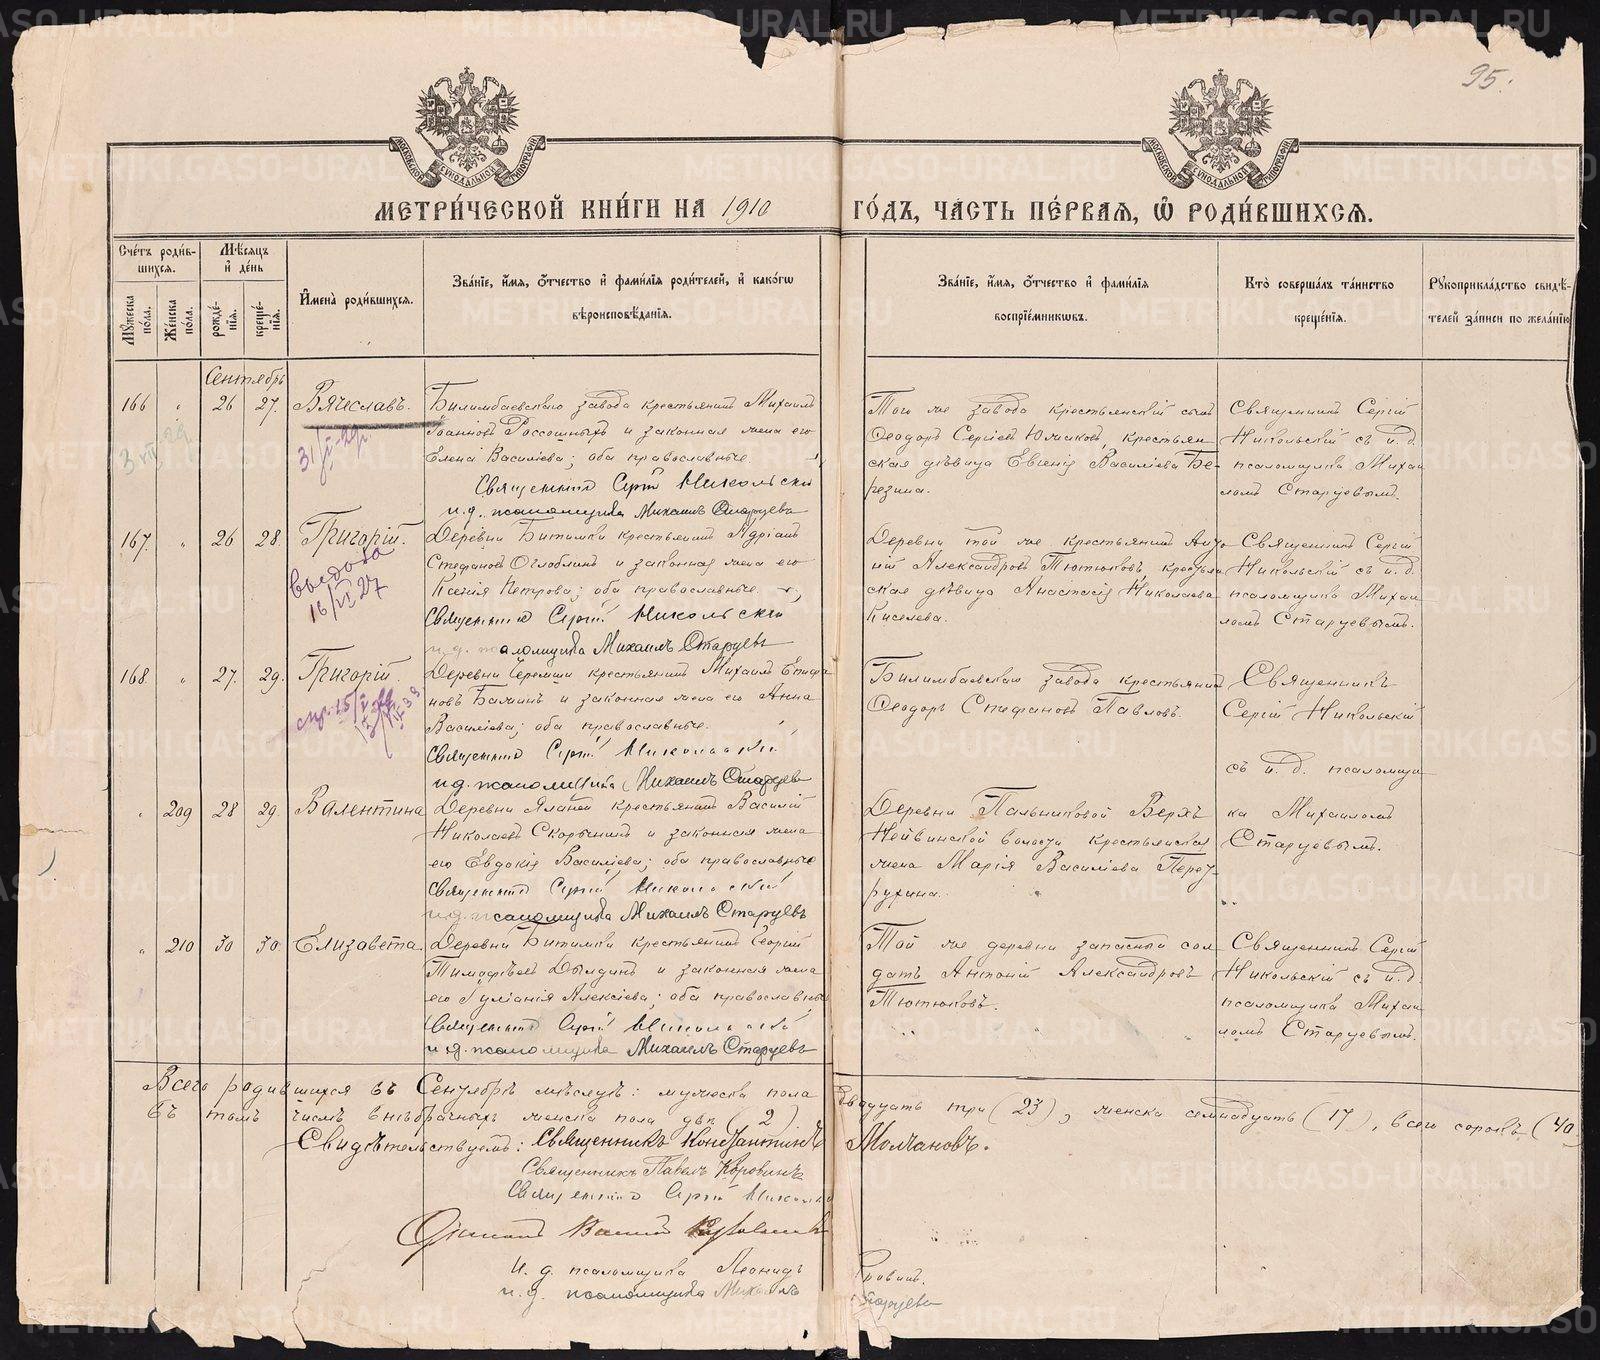 95.
МОСКОВСКОЙ СѴНОДАЛЬНОЙ ТИПОГРАФІИ
МОСКОВСКОЙ СѴНОДАЛЬНОЙ ТИПОГРАФІИ
МЕТРИ́ЧЕСКОЙ КНИ́ГИ НА 1910 ГО́ДЪ, ЧА́СТЬ ПЕ́РВАЯ, Ѡ РОДИ́ВШИХСЯ.
Сче́тъ роди́в-
шихся.
Мѣ́сяцъ
и де́нь
Мꙋ́жеска по́ла.
Же́нска по́ла.
рожде́-
нія.
креще́-
нія.
И́мена роди́вшихся.
Зва́ніе, и́мя, о́тчество и фами́лія роди́телей, и како́гѡ
вѣроисповѣ́данія.
Зва́ніе, и́мя, о́тчество и фами́лія
воспріе́мникѡвъ.
Кто̀ соверша́лъ та́инство
креще́нія.
Рꙋкоприкла́дство свидѣ́-
телей за́писи по жела́нію
Сентябрь
166 „ 26 27. Вячеславъ.
Билимбаевскаго завода крестьянинъ Михаилъ
Іоанновъ Россошныхъ и законная жена его
Елена Василіева; оба православные.
Священникъ Сергій Никольскій
и.д. псаломщика Михаилъ Старцевъ
Того же завода крестьянскій сынъ
Ѳеодоръ Сергіевъ Южаковъ, крестьян-
ская дѣвица Евгенія Василіева Бе-
резина.
Священникъ Сергій
Никольскій съ и.д.
псаломщика Михаи
ломъ Старцевымъ.
31/I-29г
167. „ 26 28. Григорій.
Деревни Битимки крестьянинъ Адріанъ
Стефановъ Оглоблинъ и законная жена его
Ксенія Петрова; оба православные.
Священникъ Сергій Никольскій
и.д. псаломщика Михаилъ Старцевъ
Деревни той же крестьянинъ Анто
ній Александровъ Тютюковъ, крестьян
ская дѣвица Анастасія Николаева
Киселева.
Священникъ Сергій
Никольскій съ и.д.
псаломщика Михаи
ломъ Старцевымъ.
16/VI 27
168. „ 27. 29. Григорій.
Деревни Черемши крестьянинъ Михаилъ Епифа
новъ Балинъ и законная жена его Анна
Василіева; оба православные.
Священникъ Сергій Никольскій
и.д. псаломщика Михаилъ Старцевъ
Билимбаевскаго завода крестьянинъ
Ѳеодоръ Стефановъ Павловъ.
Священникъ
Сергій Никольскій
съ и.д. псаломщи
ка Михаиломъ
Старцевымъ.
„ 209 28 29. Валентина
Деревни Яланей крестьянинъ Василій
Николаевъ Скорынинъ и законная жена
его Евдокія Василіева; оба православные
Священникъ Сергій Никольскій
и.д. псаломщика Михаилъ Старцевъ
Деревни Пальниковой Верхъ
Нейвинской волости крестьянская
жена Марія Василіева Перет
рухина.
„ 210 30 30 Елизавета.
Деревни Битимки крестьянинъ Георгій
Тимоѳѣевъ Дылдинъ и законная жена
его Іуліанія Алексіева; оба православные
Священникъ Сергій Никольскій
и.д. псаломщика Михаилъ Старцевъ
Той же деревни запасный сол
датъ Антоній Александровъ
Тютюковъ.
Священникъ Сергій
Никольскій съ и.д.
псаломщика Михаи
ломъ Старцевымъ.
Всего родившихся въ Сентябрѣ мѣсяцѣ: мужеска пола двадцать три (23), женска семнадцать (17), всего сорокъ (40
въ томъ числѣ внѣбрачныхъ женска пола двѣ (2)
Свидѣтельствуемъ: Священникъ Константинъ Молчановъ.
Священникъ Павелъ Коровинъ
Священникъ Сергій Никольскі
И.д. псаломщика Леонидъ
и.д. псаломщика Михаилъ Старцевъ
METRIKI.GASO-URAL.RU